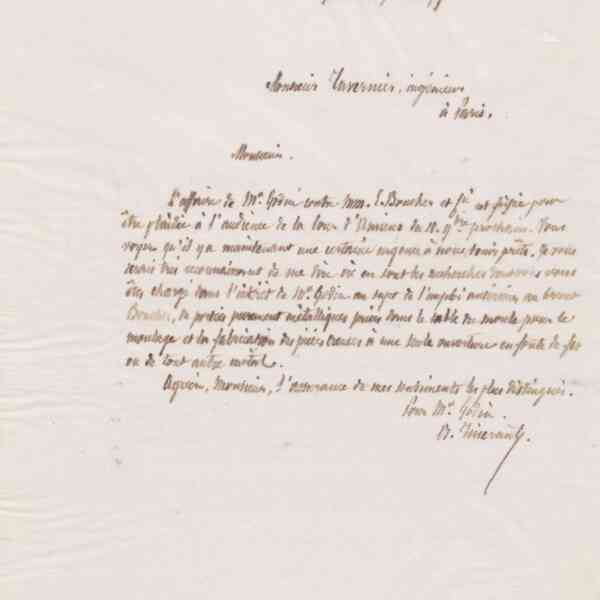 Monsieur Tavernier, ingénieur
à Paris.
Monsieur.
L'affaire de Mr. Godin contre MM. E. Boucher et Cie est fixée pour
être plaidée à l'audience de la Cour d'Amiens du 18. 9bre prochain. Vous
voyez qu'il y a maintenant une certaine urgence à nous tenir prêts. Je vous
serais très reconnaissant de me dire où en sont les recherches dont vous vous
êtes chargé dans l'intérêt de Mr. Godin au sujet de l'emploi antérieur au brevet
Boucher, de portées purement métalliques prises dans le sable du moule pour le
moulage et la fabrication des pièces creuses à une seule ouverture en fonte de fer
ou de tout autre métal.
Agréez, Monsieur, l'assurance de mes sentiments les plus distingués.
Pour Mr. Godin.